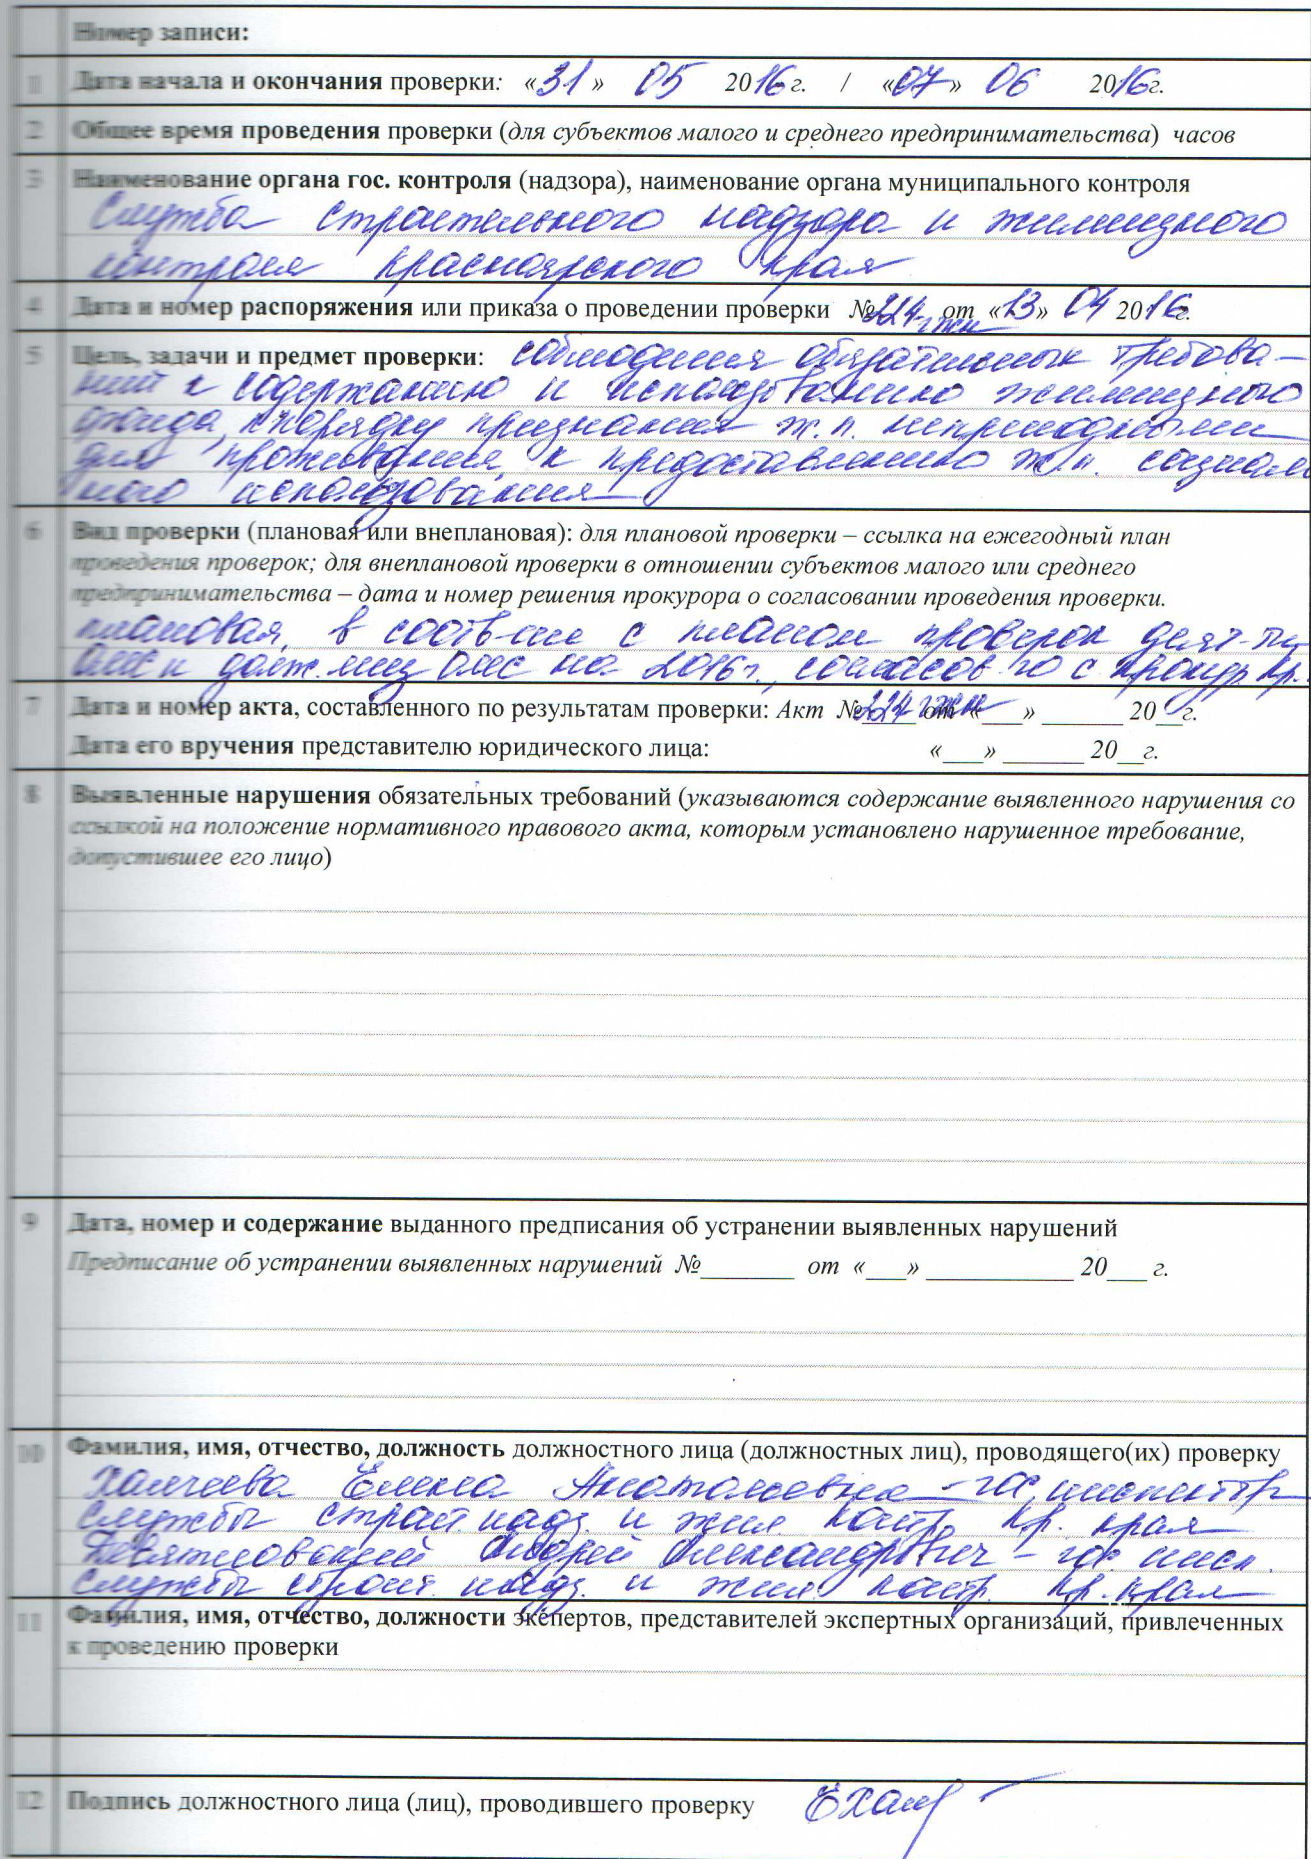 Номер записи:
1 Дата начала и окончания проверки: «31» 05 2016г. / «07» 06 2016г.
2 Общее время проведения проверки (для субъектов малого и среднего предпринимательства) часов
3 Наименование органа гос. контроля (надзора), наименование органа муниципального контроля
Служба строительного надзора и жилищного
контроля Красноярского края
4 Дата и номер распоряжения или приказа о проведении проверки № 224-гжн от «13» 04 2016г.
5 Цель, задачи и предмет проверки: соблюдения обязательных требова-
ний к содержанию и использованию жилищного
фонда, к порядку признания ж.п. непригодными
для проживания, к предоставлению ж.п. социаль
ного использования
6 Вид проверки (плановая или внеплановая): для плановой проверки – ссылка на ежегодный план
проведения проверок; для внеплановой проверки в отношении субъектов малого или среднего
предпринимательства – дата и номер решения прокурора о согласовании проведения проверки.
плановая, в соотв-ии с планом проверок деят-ти
ОМС и должн. лиц ОМС на 2016г., согласов-го с прокур. кр.
7 Дата и номер акта, составленного по результатам проверки: Акт № 224 гжн от «___» ______ 20__г.
Дата его вручения представителю юридического лица: «___» ______ 20__г.
8 Выявленные нарушения обязательных требований (указываются содержание выявленного нарушения со
ссылкой на положение нормативного правового акта, которым установлено нарушенное требование,
допустившее его лицо)
9 Дата, номер и содержание выданного предписания об устранении выявленных нарушений
Предписание об устранении выявленных нарушений №_______ от «___» ___________ 20___ г.
10 Фамилия, имя, отчество, должность должностного лица (должностных лиц), проводящего(их) проверку
Елена Анатольевна - гос. инспектор
службы строит. надз. и жил. контр. Кр. края
Андрей Александрович - гос. инсп.
службы строит. надз. и жил. контр. Кр. края
11 Фамилия, имя, отчество, должности экспертов, представителей экспертных организаций, привлеченных
к проведению проверки
12 Подпись должностного лица (лиц), проводившего проверку